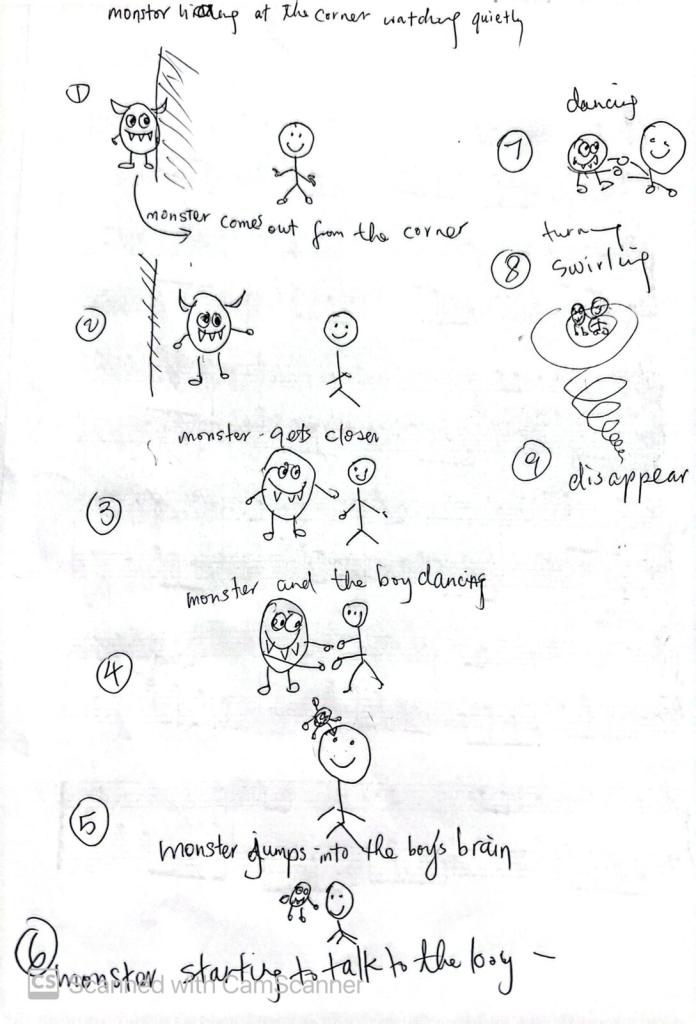 monster hiding at the corner watching quietly
1
monster comes out from the corner
2
monster gets closer
3
monster and the boy dancing
4
5
monster jumps into the boy's brain
6
monster starting to talk to the boy –
7
dancing
8
swirling
9
disappear
CS Scanned with CamScanner